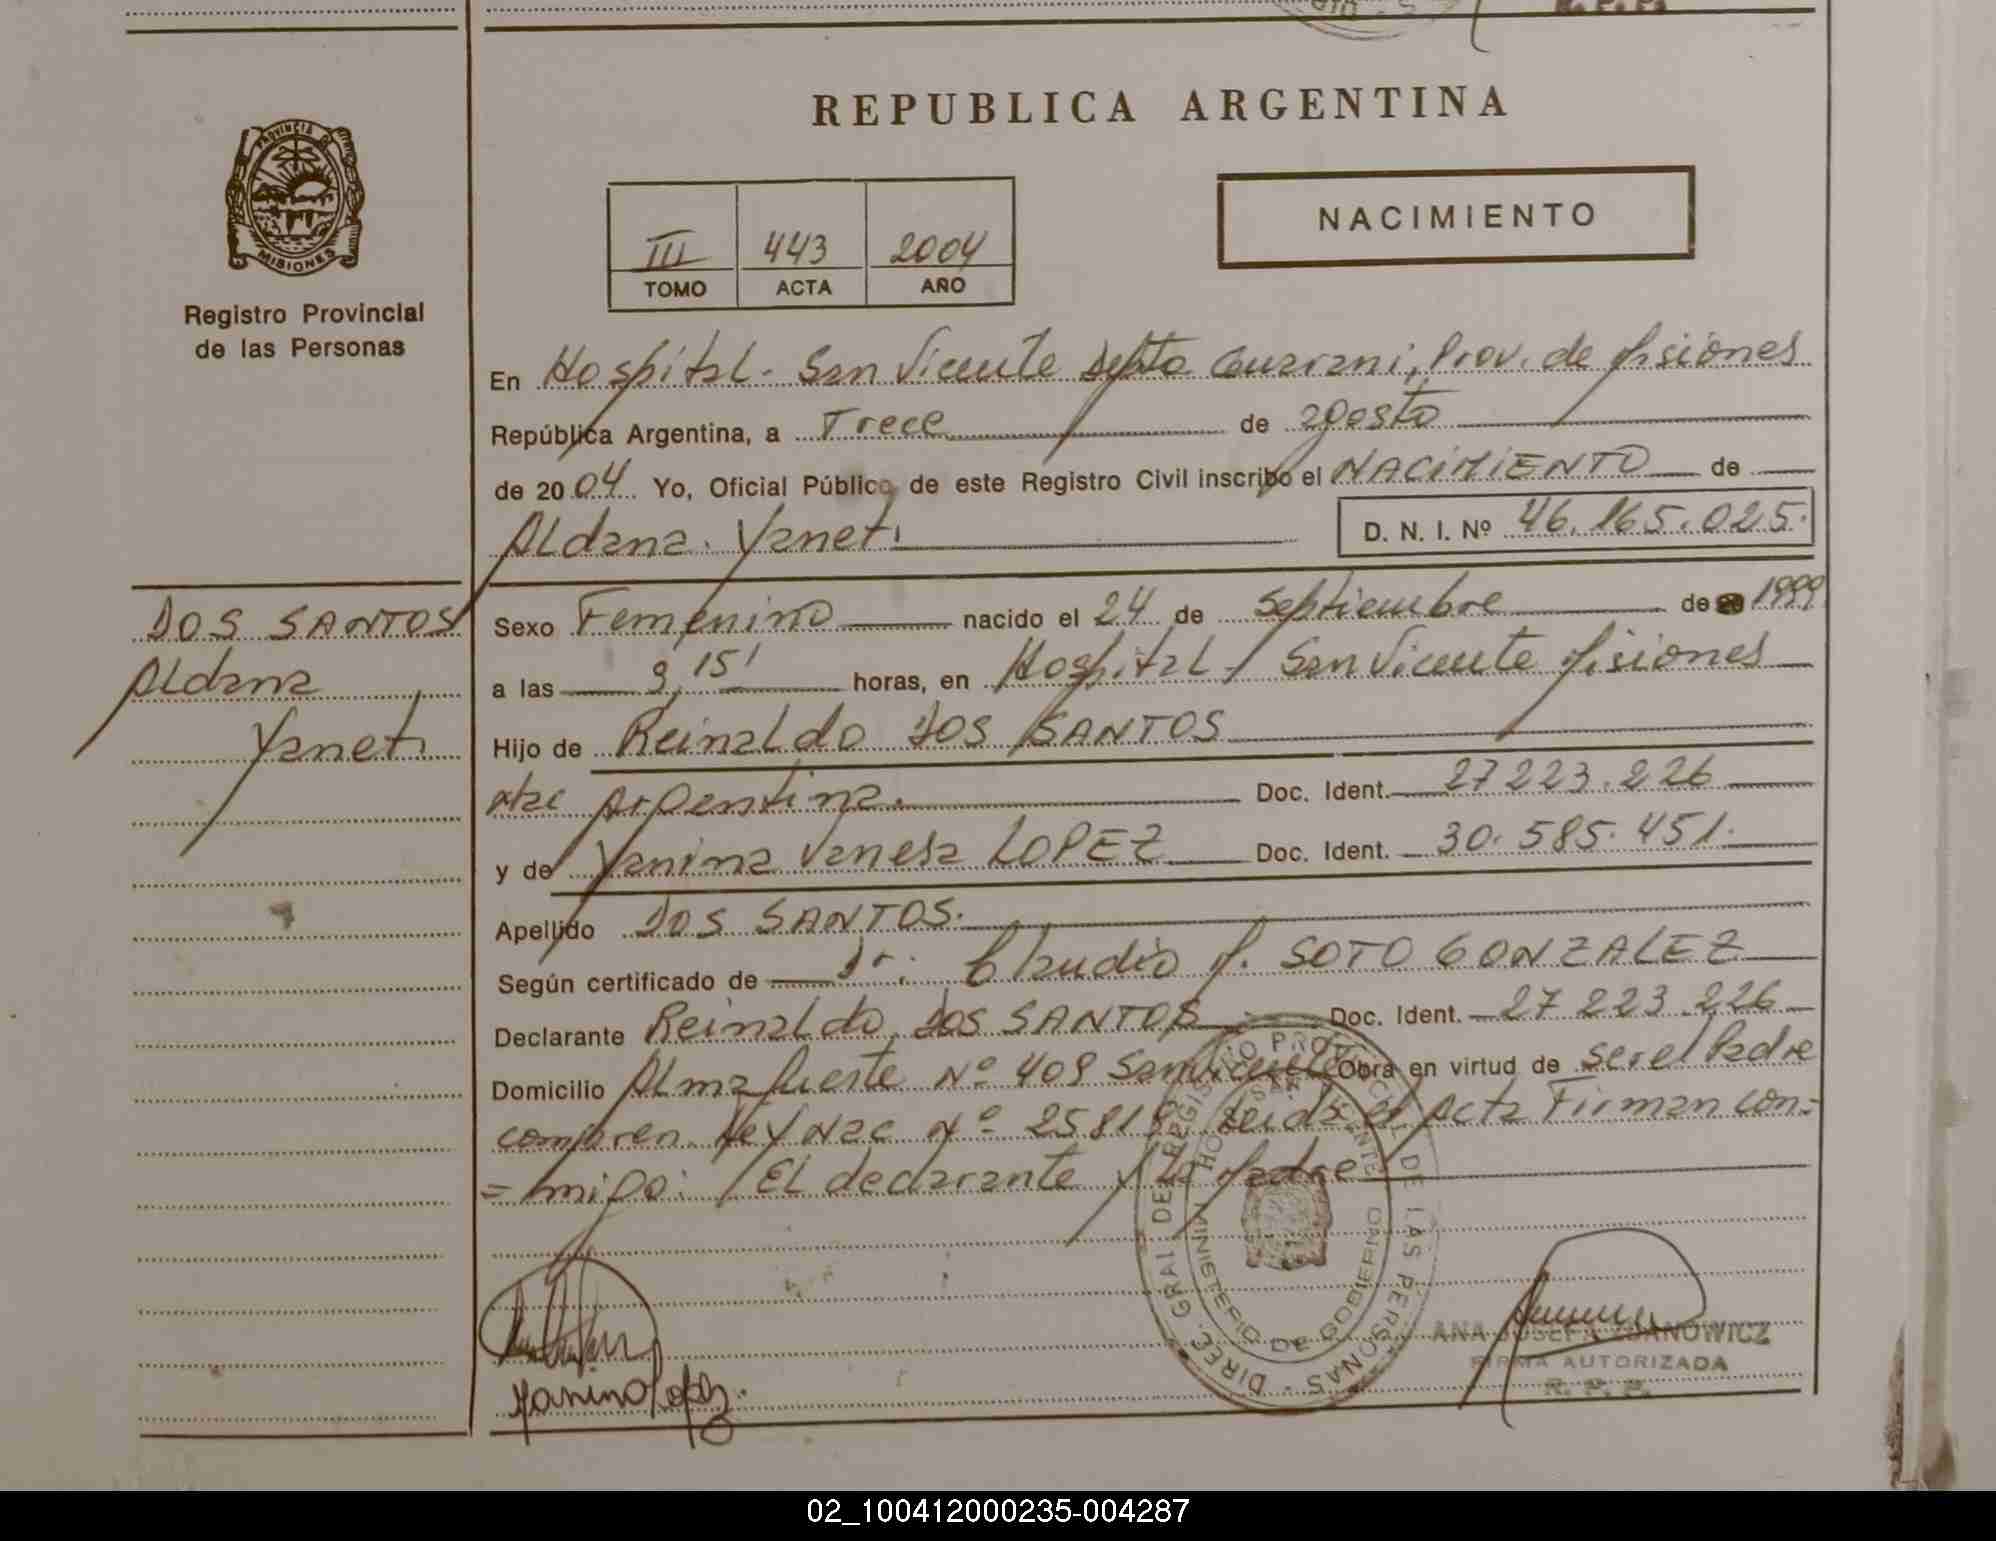 REPUBLICA ARGENTINA
PROVINCIA DE
MISIONES
Registro Provincial
de las Personas
III 443 2004
TOMO ACTA AÑO
NACIMIENTO
En Hospital - San Vicente Depto Guarani, Prov. de Misiones
República Argentina, a Trece de agosto
de 2004 Yo, Oficial Público de este Registro Civil inscribo el NACIMIENTO de
Aldana Yanet
D. N. I. Nº 46.165.025.
DOS SANTOS
Aldana
Yanet
Sexo Femenino nacido el 24 de Septiembre de 1999
a las 9,15' horas, en Hospital - San Vicente Misiones
Hijo de Reinaldo DOS SANTOS
Nac Argentina. Doc. Ident. 27 223.226
y de Yanina Vanesa LOPEZ Doc. Ident. 30.585.451.
Apellido DOS SANTOS.
Según certificado de Dr. Claudio M. SOTO GONZALEZ
Declarante Reinaldo DOS SANTOS Doc. Ident. 27 223.226
Domicilio Almafuerte Nº 409 San Vicente Obra en virtud de ser el Padre
Ley Nac Nº 25819 Leida el Acta Firman con=
=migo: El declarante y la Madre
DIREC. GRAL DEL REGISTRO PROVINCIAL DE LAS PERSONAS -
MINISTERIO DE GOBIERNO
Yanina Lopez.
FIRMA AUTORIZADA
R. P. P.
02_100412000235-004287